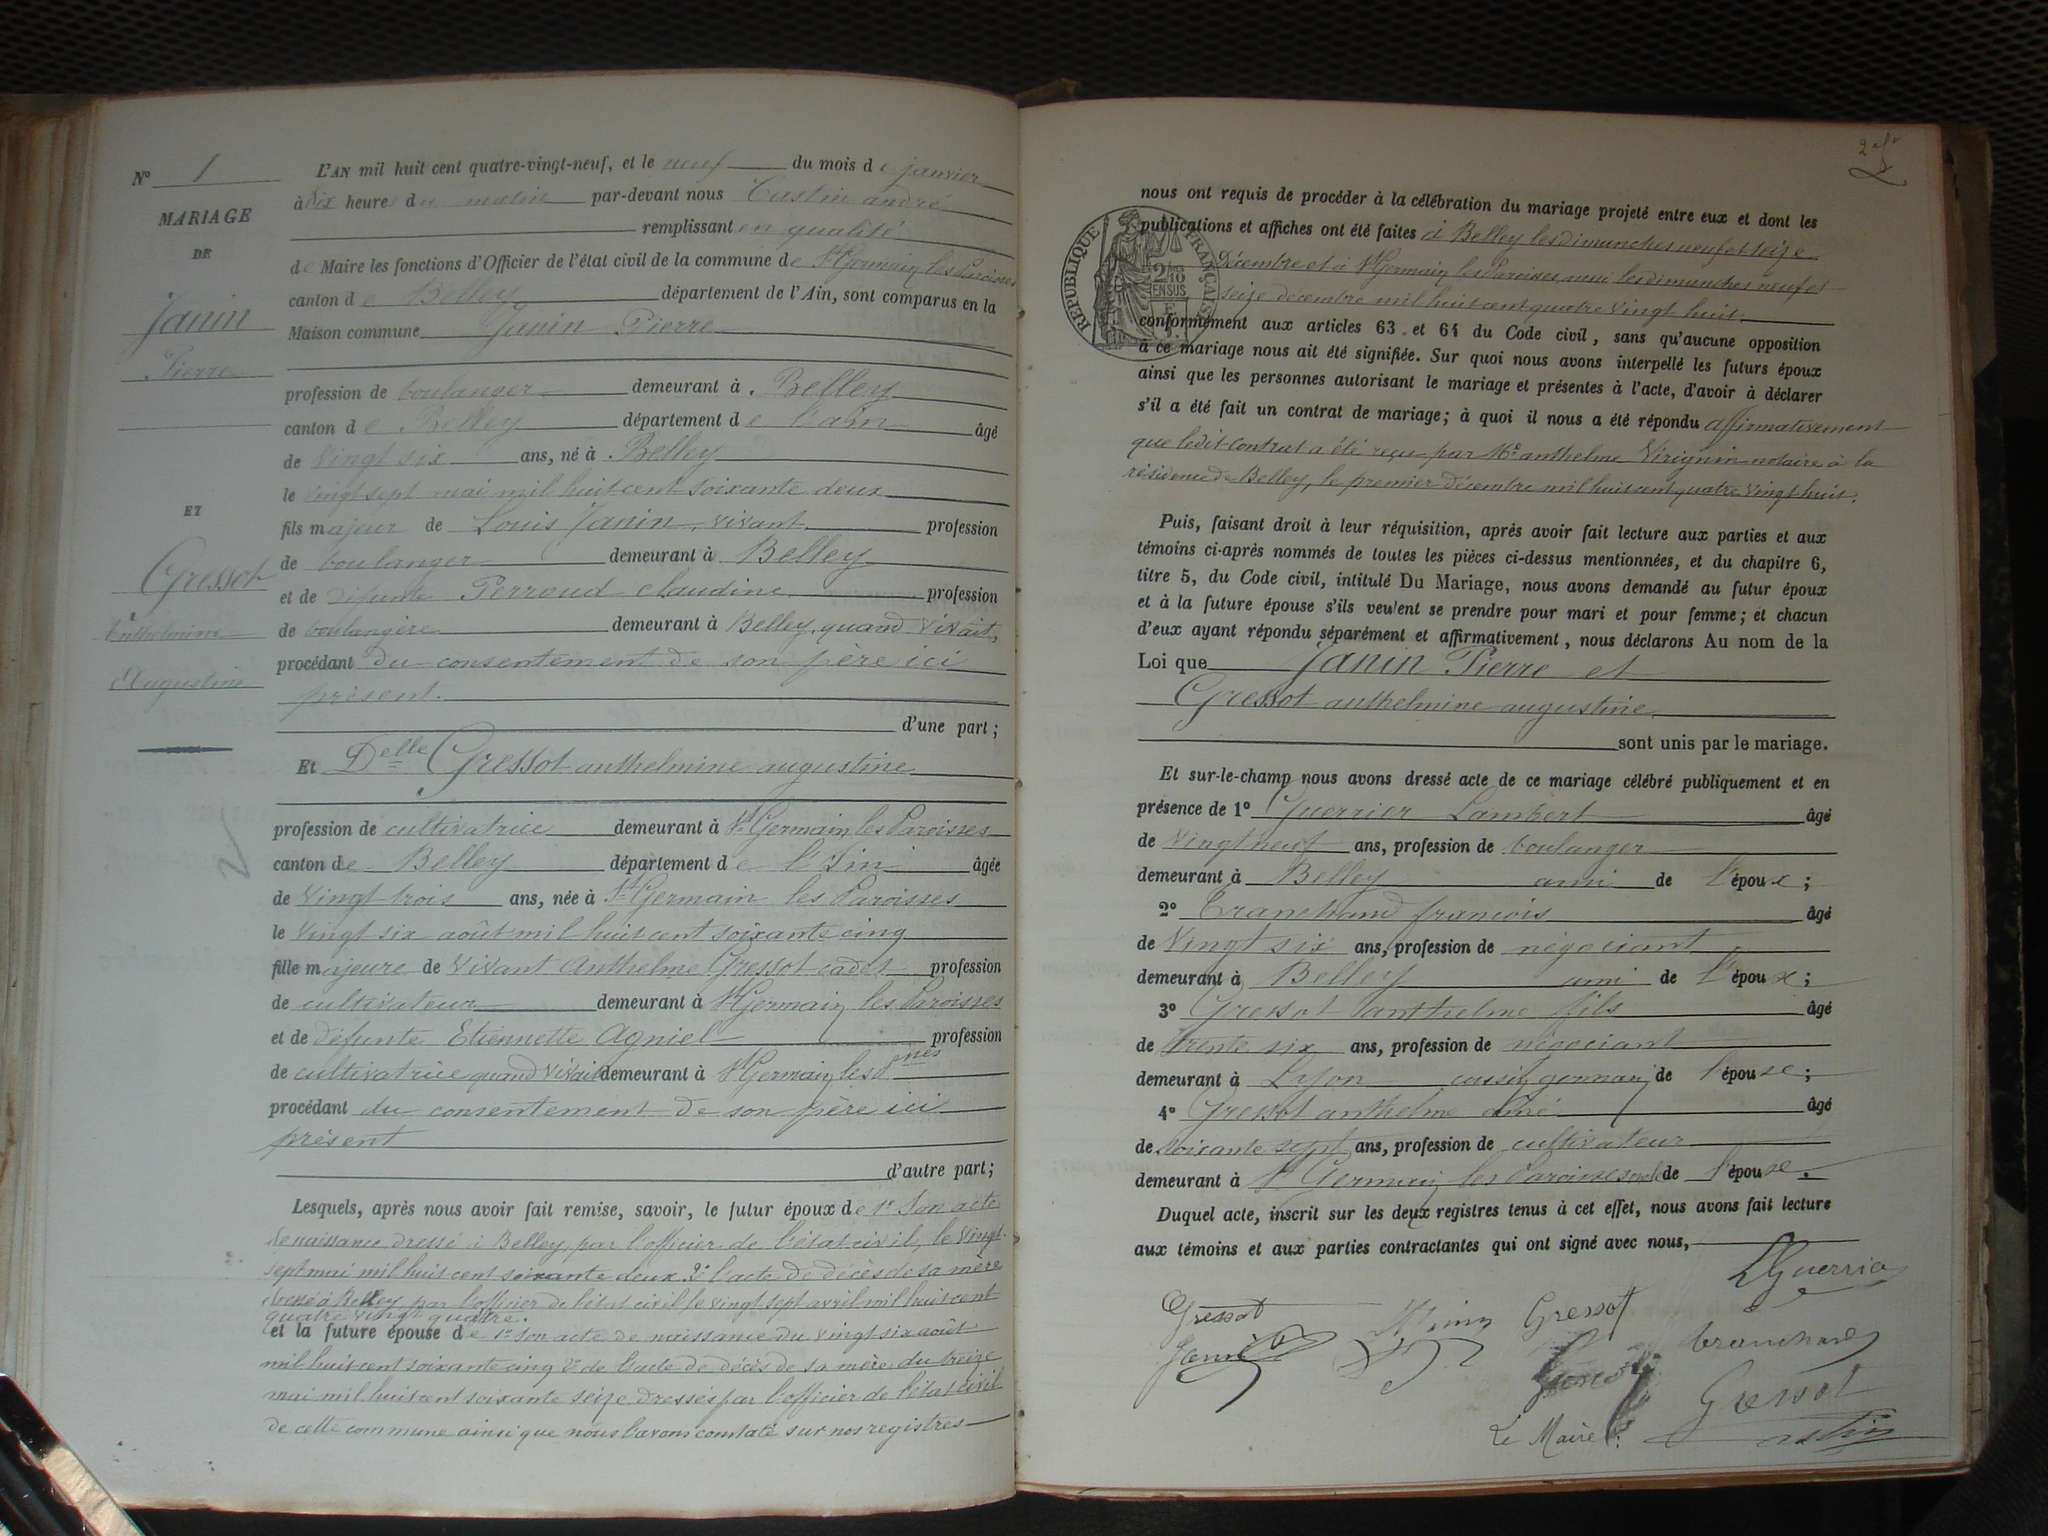 N° 1
MARIAGE
DE
Janin
Pierre
ET
Gressot
Anthelmine
Augustine
L'AN mil huit cent quatre-vingt-neuf, et le neuf du mois de janvier
à dix heures du matin par-devant nous Castin andré
remplissant en qualité
de Maire les fonctions d'Officier de l'état civil de la commune de St Germain les Paroisses
canton de Belley département de l'Ain, sont comparus en la
Maison commune Janin Pierre
profession de boulanger demeurant à Belley
canton de Belley département de l'ain âgé
de vingt six ans, né à Belley
le vingt sept mai mil huit cent soixante deux
fils majeur de Louis Janin, vivant profession
de boulanger demeurant à Belley
et de défunte Perroud claudine profession
de boulangère demeurant à Belley, quand vivait,
procédant du consentement de son père ici
présent.
d'une part ;
Et Delle Gressot anthelmine augustine
profession de cultivatrice demeurant à St Germain les Paroisses
canton de Belley département de l'Ain âgée
de vingt trois ans, née à St Germain les Paroisses
le vingt six août mil huit cent soixante cinq
fille majeure de vivant Anthelme Gressot cadet profession
de cultivateur demeurant à St Germain les Paroisses
et de défunte Etiennette Agniel profession
de cultivatrice quand vivait demeurant à St Germain les Pses
procédant du consentement de son père ici
présent
d'autre part ;
Lesquels, après nous avoir fait remise, savoir, le futur époux de 1° Son acte
de naissance dressé à Belley par l'officier de l'état civil, le vingt
sept mai mil huit cent soixante deux 2° l'acte de décès de sa mère
dressé à Belley par l'officier de l'état civil le vingt sept avril mil huit cent
quatre vingt quatre.
et la future épouse de 1° son acte de naissance du vingt six août
mil huit cent soixante cinq 2° de l'acte de décès de sa mère du treize
mai mil huit cent soixante seize dressés par l'officier de l'état civil
de cette commune ainsi que nous l'avons constaté sur nos registres
nous ont requis de procéder à la célébration du mariage projeté entre eux et dont les
publications et affiches ont été faites à Belley les dimanches neuf et seize
Décembre et à St Germain les Paroisses, aussi les dimanches neuf et
seize decembre mil huit cent quatre vingt huit
RÉPUBLIQUE FRANÇAISE
conformément aux articles 63 et 64 du Code civil, sans qu'aucune opposition
à ce mariage nous ait été signifiée. Sur quoi nous avons interpellé les futurs époux
ainsi que les personnes autorisant le mariage et présentes à l'acte, d'avoir à déclarer
s'il a été fait un contrat de mariage ; à quoi il nous a été répondu affirmativement
que ledit contrat a été reçu par Me anthelme Virignin notaire à la
résidence de Belley, le premier Décembre mil huit cent quatre vingt huit.
Puis, faisant droit à leur réquisition, après avoir fait lecture aux parties et aux
témoins ci-après nommés de toutes les pièces ci-dessus mentionnées, et du chapitre 6,
titre 5, du Code civil, intitulé Du Mariage, nous avons demandé au futur époux
et à la future épouse s'ils veulent se prendre pour mari et pour femme ; et chacun
d'eux ayant répondu séparément et affirmativement, nous déclarons Au nom de la
Loi que Janin Pierre et
Gressot anthelmine augustine
sont unis par le mariage.
Et sur-le-champ nous avons dressé acte de ce mariage célébré publiquement et en
présence de 1° Guerrier Lambert âgé
de vingt neuf ans, profession de boulanger
demeurant à Belley ami de l'époux ;
2° Tranchand françois âgé
de vingt six ans, profession de négociant
demeurant à Belley ami de l'époux ;
3° Gressot anthelme fils âgé
de trente six ans, profession de négociant
demeurant à Lyon cousin germain de l'épouse ;
4° Gressot anthelme aîné âgé
de soixante sept ans, profession de cultivateur
demeurant à St Germain les Paroisses oncle de l'épouse.
Duquel acte, inscrit sur les deux registres tenus à cet effet, nous avons fait lecture
aux témoins et aux parties contractantes qui ont signé avec nous,
LGuerrier
Gressot Gressot
Janin Tranchand
Gressot
Le Maire : Castin